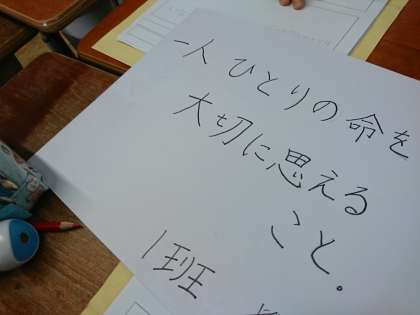 一人ひとりの命を
大切に思える
こと。
1班